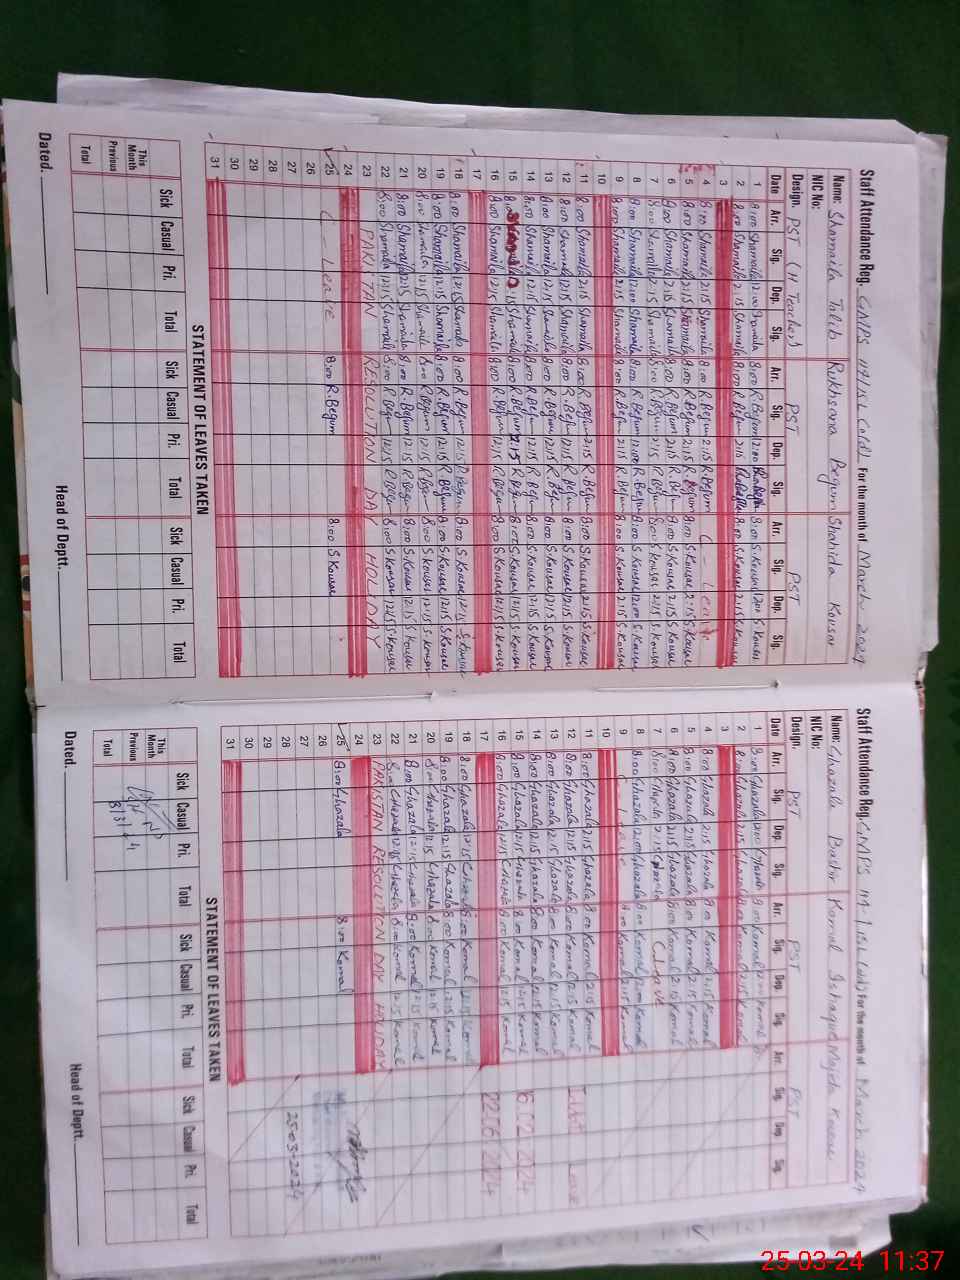 Staff Attendance Reg. GMPS 114/15L (old) For the month of March 2024
Name: Shamaila Talib Rukhsana Begum Shahida Kousar
NIC No:
Design. PST (H Teacher) PST PST
Date Arr. Sig. Dep. Sig. Arr. Sig. Dep. Sig. Arr. Sig. Dep. Sig.
1 8:00 Shamaila 12:00 Shamaila 8:00 R.Begum 12:00 8:00 S.Kousar 12:00 S.Kousar
2 8:00 Shamaila 2:15 Shamaila 8:00 R.Begum 2:15 8:00 S.Kousar 2:15 S.Kousar
3
4 8:00 Shamaila 2:15 Shamaila 8:00 R.Begum 2:15 R.Begum C - Leave
5 8:00 Shamaila 2:15 Shamaila 8:00 R.Begum 2:15 R.Begum 8:00 S.Kousar 2:15 S.Kousar
6 8:00 Shamaila 2:15 Shamaila 8:00 R.Begum 2:15 R.Begum 8:00 S.Kousar 2:15 S.Kousar
7 8:00 Shamaila 2:15 Shamaila 8:00 R.Begum 2:15 R.Begum 8:00 S.Kousar 2:15 S.Kousar
8 8:00 Shamaila 12:00 Shamaila 8:00 R.Begum 12:00 R.Begum 8:00 S.Kousar 12:00 S.Kousar
9 8:00 Shamaila 2:15 Shamaila 8:00 R.Begum 2:15 R.Begum 8:00 S.Kousar 2:15 S.Kousar
10
11 8:00 Shamaila 2:15 Shamaila 8:00 R.Begum 2:15 R.Begum 8:00 S.Kousar 2:15 S.Kousar
12 8:00 Shamaila 12:15 Shamaila 8:00 R.Begum 12:15 R.Begum 8:00 S.Kousar 12:15 S.Kousar
13 8:00 Shamaila 12:15 Shamaila 8:00 R.Begum 12:15 R.Begum 8:00 S.Kousar 12:15 S.Kousar
14 8:00 Shamaila 12:15 Shamaila 8:00 R.Begum 12:15 R.Begum 8:00 S.Kousar 12:15 S.Kousar
15 8:00 12:15 Shamaila 8:00 R.Begum 12:15 R.Begum 8:00 S.Kousar 12:15 S.Kousar
16 8:00 Shamaila 12:15 Shamaila 8:00 R.Begum 12:15 R.Begum 8:00 S.Kousar 12:15 S.Kousar
17
18 8:00 Shamaila 12:15 8:00 R.Begum 12:15 R.Begum 8:00 S.Kousar 12:15 S.Kousar
19 8:00 Shamaila 12:15 Shamaila 8:00 R.Begum 12:15 R.Begum 8:00 S.Kousar 12:15 S.Kousar
20 8:00 Shamaila 12:15 Shamaila 8:00 R.Begum 12:15 R.Begum 8:00 S.Kousar 12:15 S.Kousar
21 8:00 Shamaila 12:15 Shamaila 8:00 R.Begum 12:15 R.Begum 8:00 S.Kousar 12:15 S.Kousar
22 8:00 Shamaila 12:15 Shamaila 8:00 R.Begum 12:15 R.Begum 8:00 S.Kousar 12:15 S.Kousar
23 PAKISTAN RESOLUTION DAY HOLIDAY
24
25 C - Leave 8:00 R.Begum 8:00 S.Kousar
26
27
28
29
30
31
STATEMENT OF LEAVES TAKEN
Sick Casual Pri. Total Sick Casual Pri. Total Sick Casual Pri. Total
This Month
Previous
Total
Dated. Head of Deptt.
Staff Attendance Reg. GMPS 114/15L (old) For the month of March 2024
Name: Ghazala Bashir Komal Ishaque Majida Kousar
NIC No:
Design. PST PST PST
Date Arr. Sig. Dep. Sig. Arr. Sig. Dep. Sig. Arr. Sig. Dep. Sig.
1 8:00 Ghazala 12:00 Ghazala 8:00 Komal 12:00 Komal
2 8:00 Ghazala 2:15 Ghazala 8:00 Komal 2:15 Komal
3
4 8:00 Ghazala 2:15 Ghazala 8:00 Komal 2:15 Komal
5 8:00 Ghazala 2:15 Ghazala 8:00 Komal 2:15 Komal
6 8:00 Ghazala 2:15 Ghazala 8:00 Komal 2:15 Komal
7 8:00 Ghazala 2:15 Ghazala
8 8:00 Ghazala 12:00 Ghazala 8:00 Komal 12:00 Komal
9 C - Leave 8:00 Komal 2:15 Komal
10
11 8:00 Ghazala 2:15 Ghazala 8:00 Komal 2:15 Komal
12 8:00 Ghazala 12:15 Ghazala 8:00 Komal 12:15 Komal
13 8:00 Ghazala 12:15 Ghazala 8:00 Komal 12:15 Komal
14 8:00 Ghazala 12:15 Ghazala 8:00 Komal 12:15 Komal
15 8:00 Ghazala 12:15 Ghazala 8:00 Komal 12:15 Komal
16 8:00 Ghazala 12:15 Ghazala 8:00 Komal 12:15 Komal
17
18 8:00 Ghazala 12:15 Ghazala 8:00 Komal 12:15 Komal
19 8:00 Ghazala 12:15 Ghazala 8:00 Komal 12:15 Komal
20 8:00 Ghazala 12:15 Ghazala 8:00 Komal 12:15 Komal
21 8:00 Ghazala 12:15 Ghazala 8:00 Komal 12:15 Komal
22 8:00 Ghazala 12:15 Ghazala 8:00 Komal 12:15 Komal
23 PAKISTAN RESOLUTION DAY HOLIDAY
24
25 8:00 Ghazala 8:00 Komal
26
27
28
29
30
31
25-03-2024
STATEMENT OF LEAVES TAKEN
Sick Casual Pri. Total Sick Casual Pri. Total Sick Casual Pri. Total
This Month
Previous
Total
Dated. Head of Deptt.
25-03-24 11:37